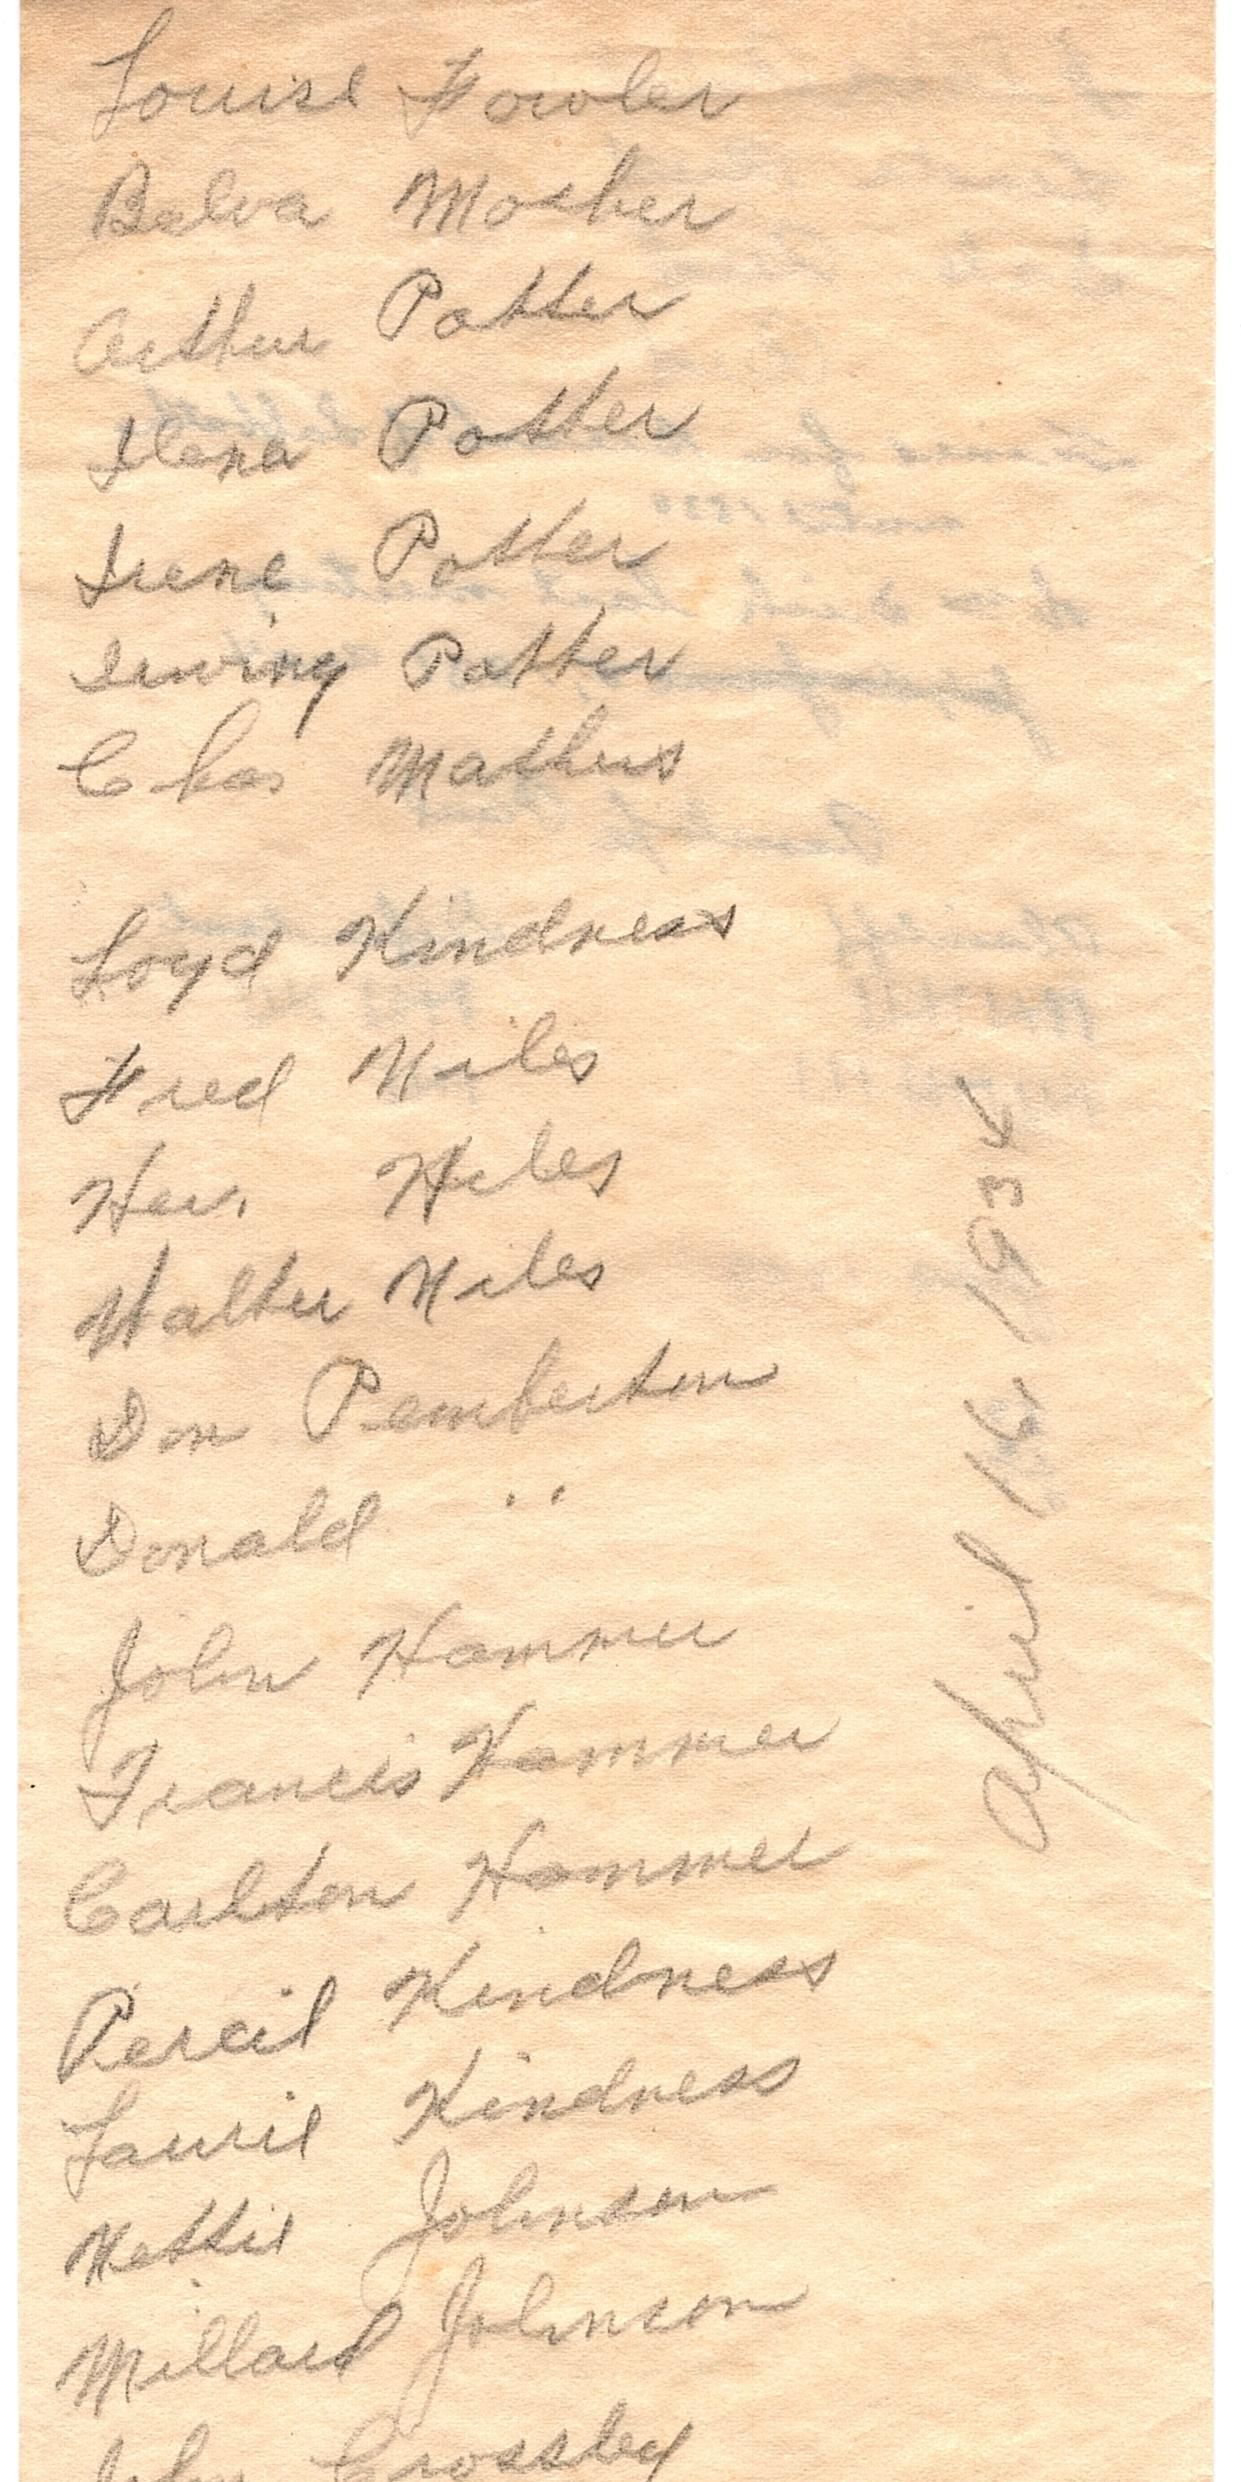 Louise Fowler
Belva Mosher
Arthur Potter
Ilena Potter
Irene Potter
Irving Potter
Chas Mathews
Loyd Kindness
Fred Niles
Her. Niles
Walter Niles
Don Pemberton
Donald " "
John Hammer
Francis Hammer
Carlton Hammer
Percie Kindness
Laurie Kindness
Nettie Johnson
Millard Johnson
John Crossley
April 16 1934